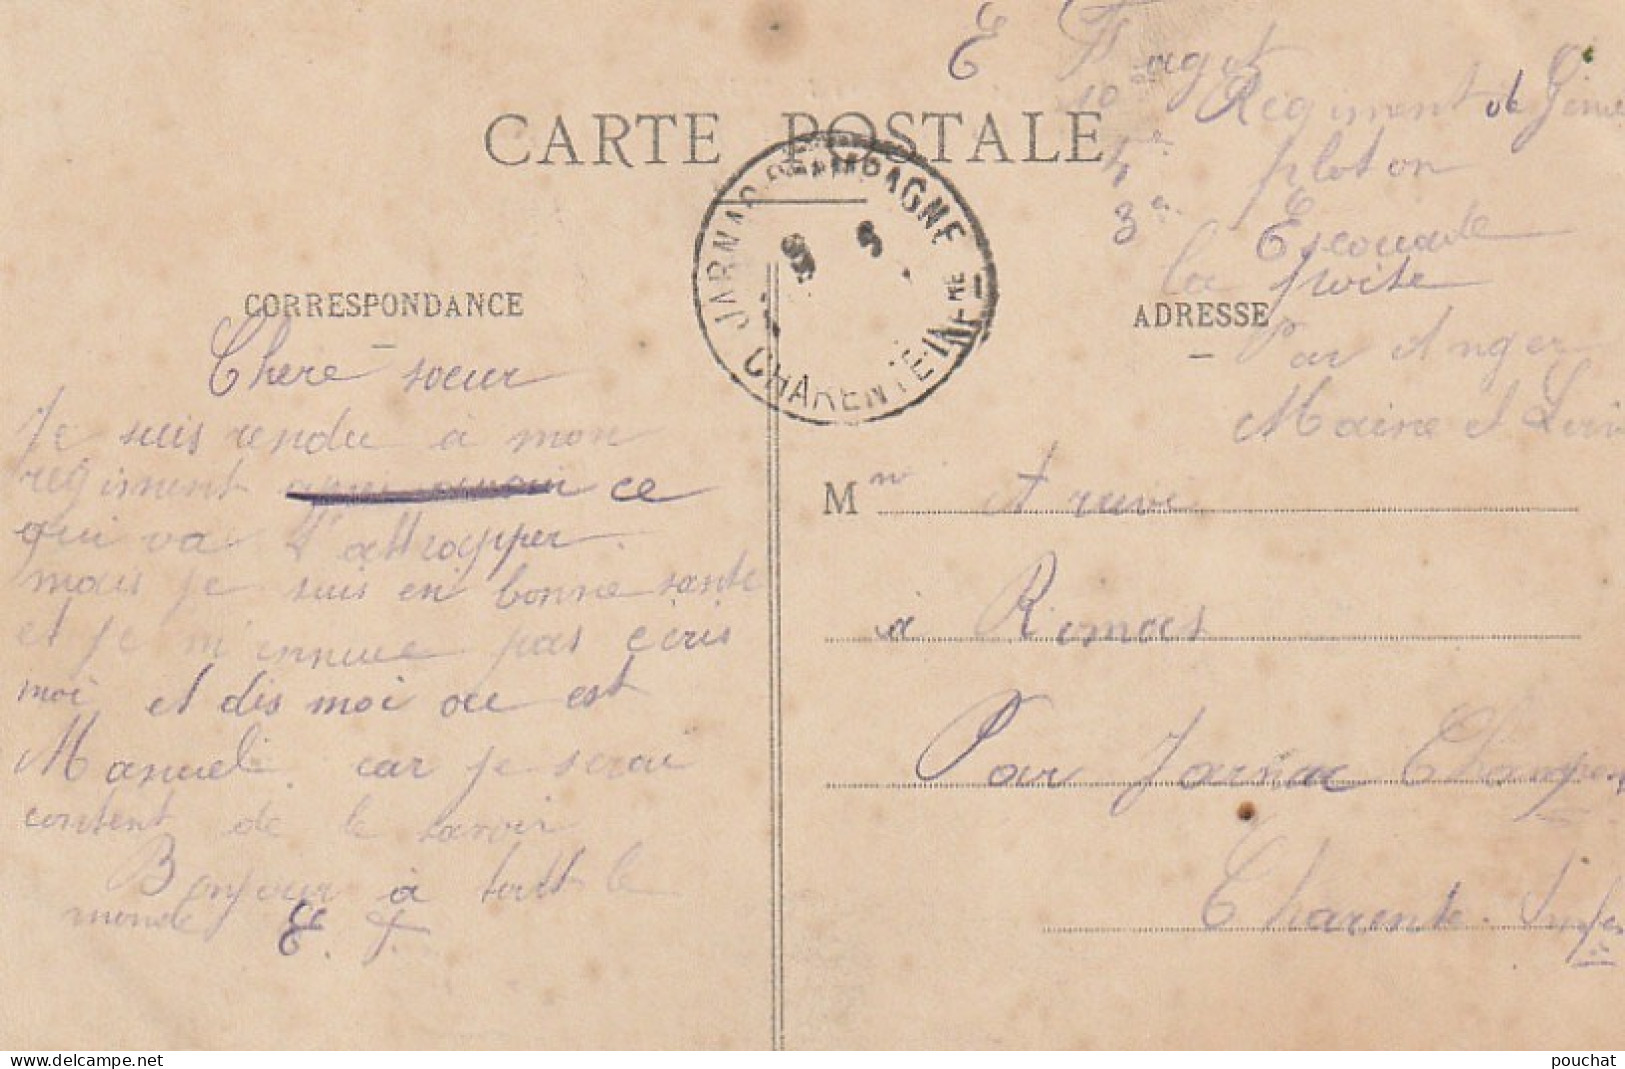 CARTE POSTALE
E F
Regiment de Genie
ploton
3e Escouade
la
Par Anger
Maine et Loire
JARNAC CHAMPAGNE
CHARENTE INFRE
5
CORRESPONDANCE
ADRESSE
Chere soeur
Je suis rendu a mon
regiment ce
qui va
mais je suis en bonne sante
et je m'ennuie pas ecris
moi et dis moi ou est
Manuel car je serai
content de le savoir
Bonjour à tout le
monde E. F.
M
à Romas
Par Jarnac Champagne
Charente Infer
www.delcampe.net
pouchat